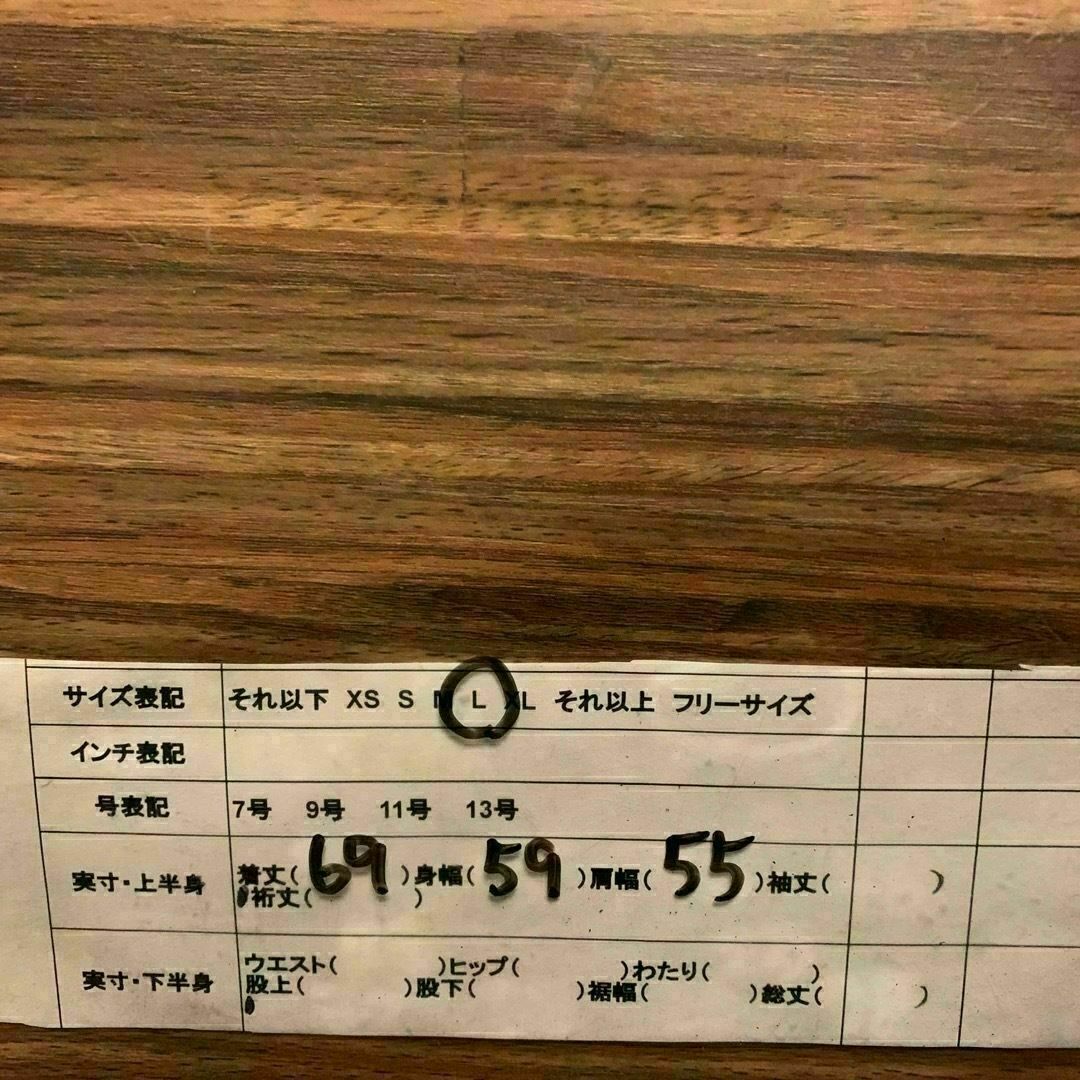 サイズ表記 それ以下 XS S M L XL それ以上 フリーサイズ
インチ表記
号表記 7号 9号 11号 13号
実寸・上半身 着丈( 69 )身幅( 59 )肩幅( 55 )袖丈( )
裄丈( )
実寸・下半身 ウエスト( )ヒップ( )わたり( )
股上( )股下( )裾幅( )総丈( )